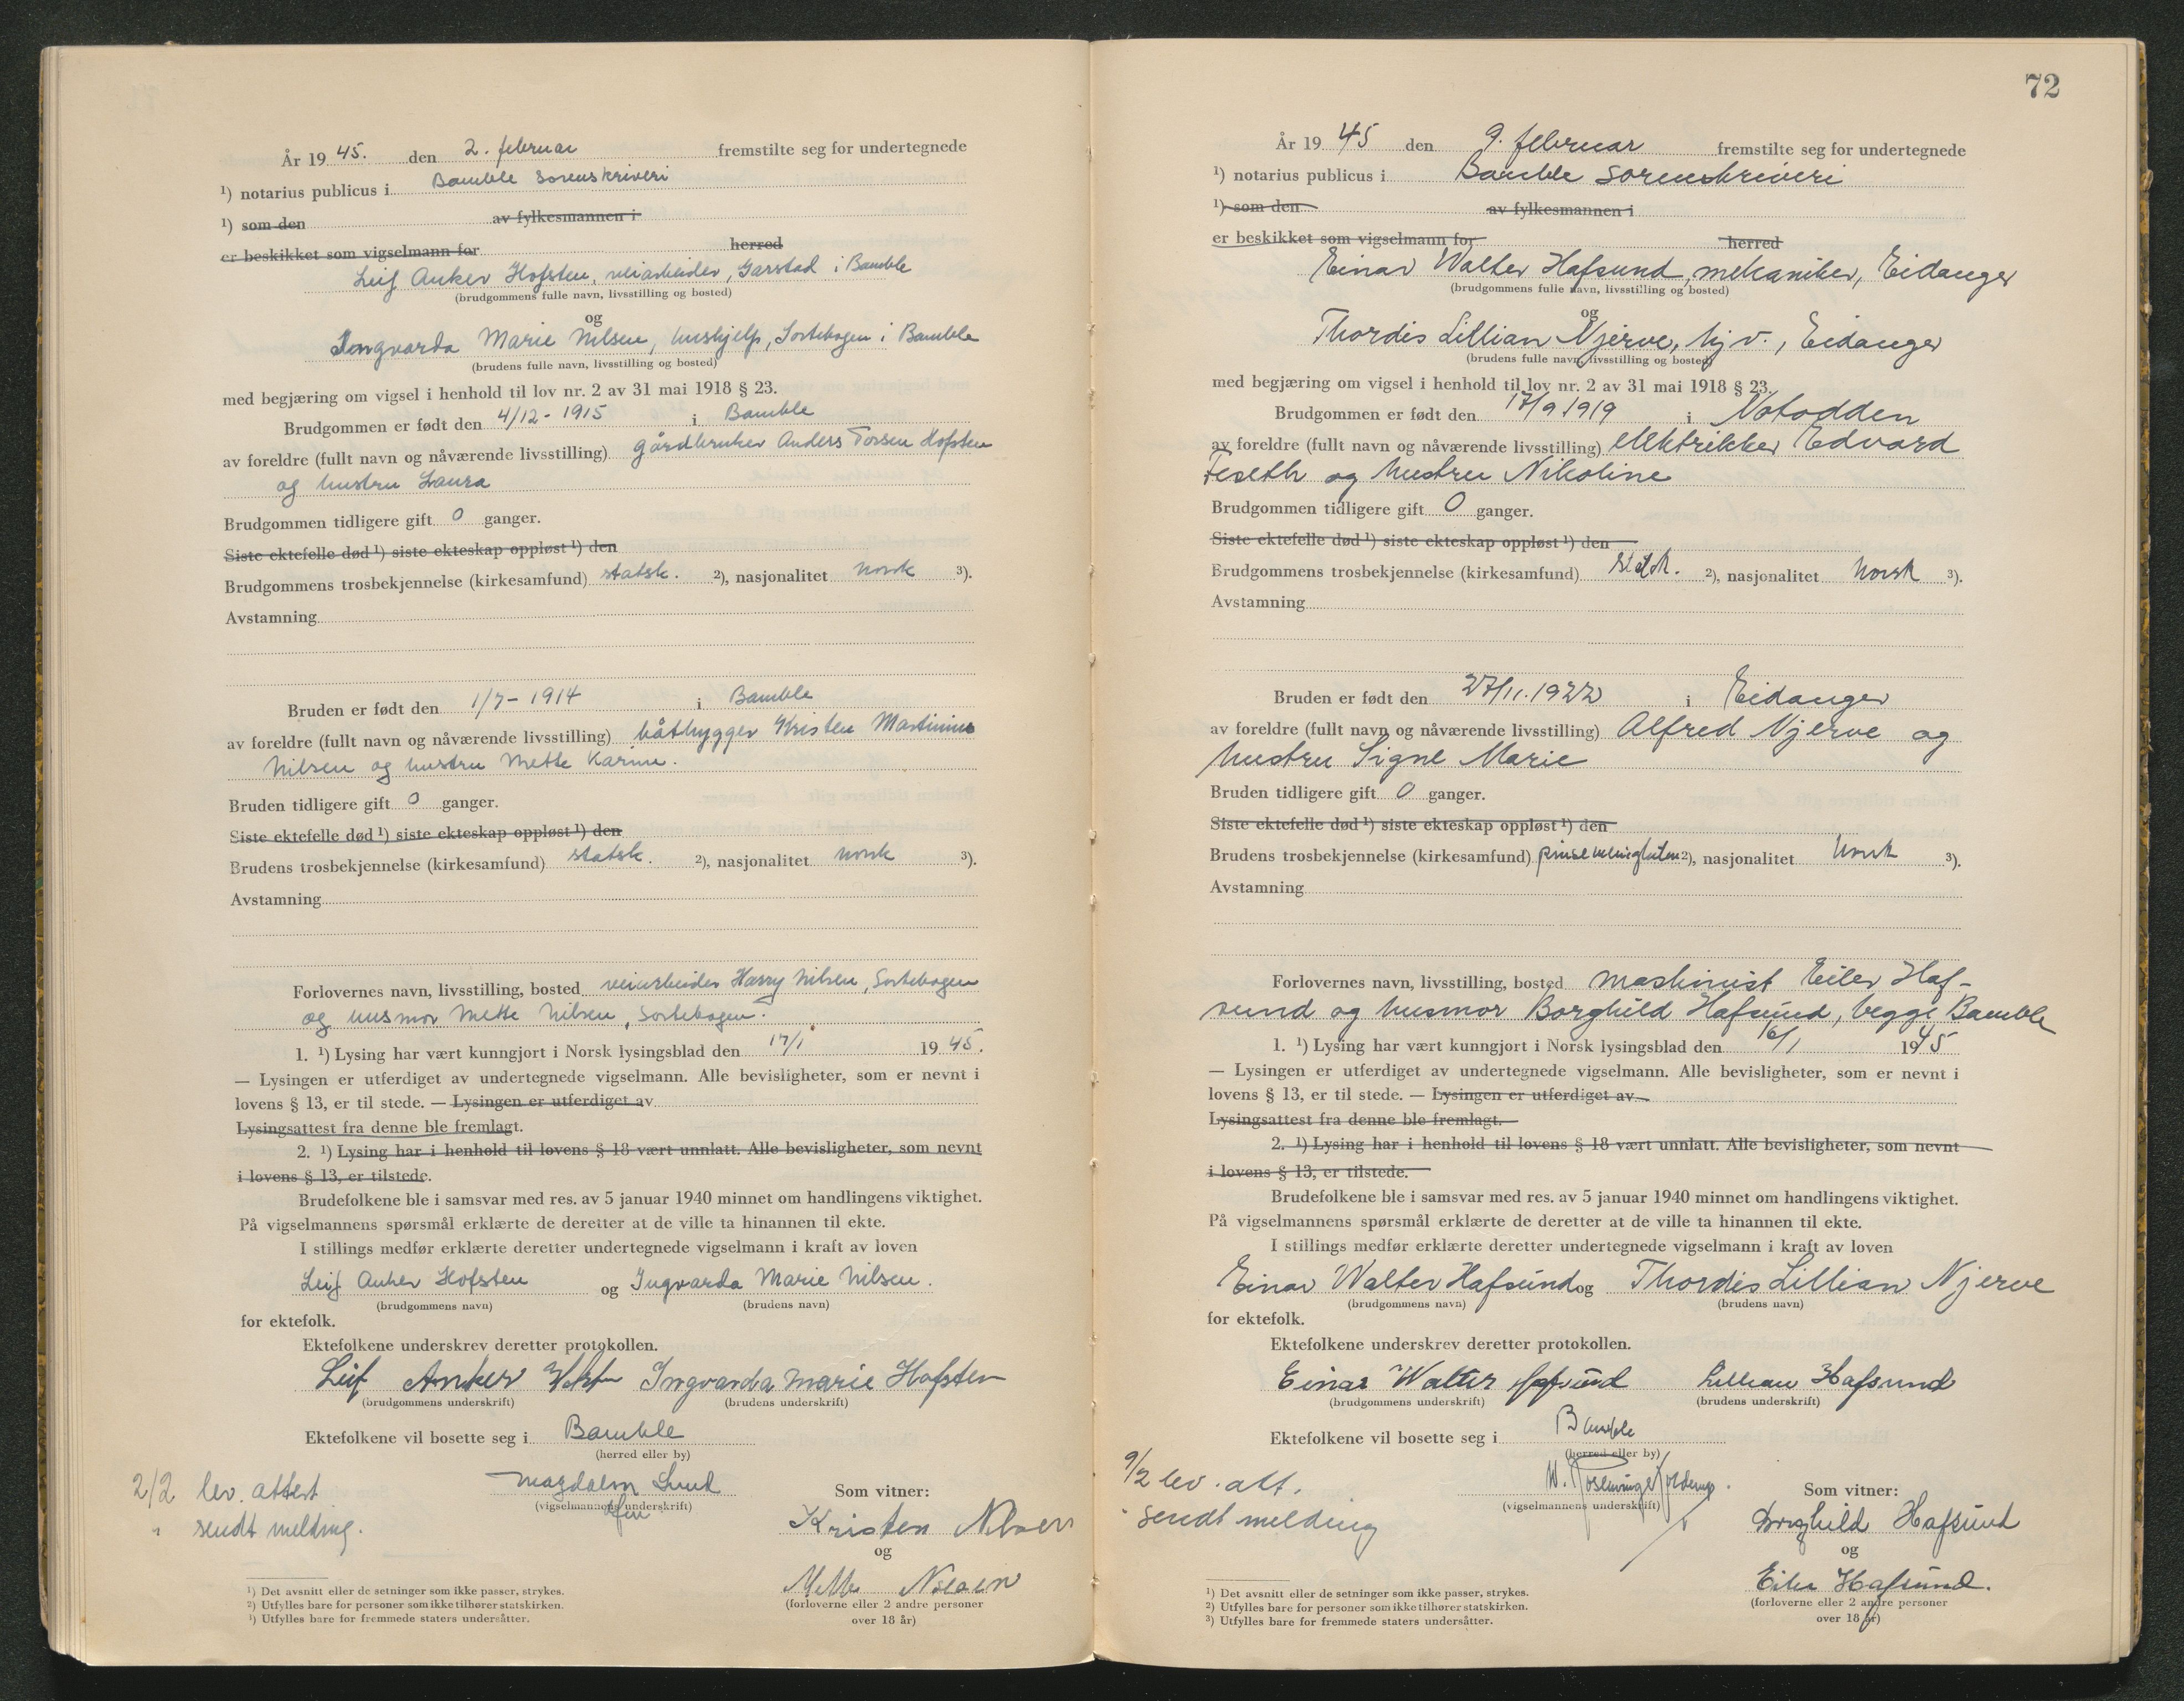 År 1945. den 2. februar fremstilte seg for undertegnede
¹) notarius publicus i Bamble Sorenskriveri
¹) som den av fylkesmannen i
er beskikket som vigselmann for herred
Leif Anker Hofsten, veiarbeider, Garstad i Bamble
(brudgommens fulle navn, livsstilling og bosted)
og
Ingvarda Marie Nilsen, hushjelp, Sortebogen i Bamble
(brudens fulle navn, livsstilling og bosted)
med begjæring om vigsel i henhold til lov nr. 2 av 31 mai 1918 § 23.
Brudgommen er født den 4/12 - 1915 i Bamble
av foreldre (fullt navn og nåværende livsstilling) gårdbruker Anders Torsen Hofsten
og hustru Laura
Brudgommen tidligere gift 0 ganger.
Siste ektefelle død ¹) siste ekteskap oppløst ¹) den
Brudgommens trosbekjennelse (kirkesamfund) statsk. ²), nasjonalitet norsk ³).
Avstamning
Bruden er født den 1/7 - 1914 i Bamble
av foreldre (fullt navn og nåværende livsstilling) båtbygger Kristen Martinius
Nilsen og hustru Mette Karine.
Bruden tidligere gift 0 ganger.
Siste ektefelle død ¹) siste ekteskap oppløst ¹) den
Brudens trosbekjennelse (kirkesamfund) statsk. ²), nasjonalitet norsk ³).
Avstamning
Forlovernes navn, livsstilling, bosted veiarbeider Harry Nilsen, Sortebogen
og husmor Mette Nilsen, Sortebogen.
1. ¹) Lysing har vært kunngjort i Norsk lysingsblad den 17/1 1945.
— Lysingen er utferdiget av undertegnede vigselmann. Alle bevisligheter, som er nevnt i
lovens § 13, er til stede. — Lysingen er utferdiget av
Lysingsattest fra denne ble fremlagt.
2. ¹) Lysing har i henhold til lovens § 18 vært unnlatt. Alle bevisligheter, som nevnt
i lovens § 13, er tilstede.
Brudefolkene ble i samsvar med res. av 5 januar 1940 minnet om handlingens viktighet.
På vigselmannens spørsmål erklærte de deretter at de ville ta hinannen til ekte.
I stillings medfør erklærte deretter undertegnede vigselmann i kraft av loven
Leif Anker Hofsten og Ingvarda Marie Nilsen.
(brudgommens navn) (brudens navn)
for ektefolk.
Ektefolkene underskrev deretter protokollen.
Leif Anker Hofsten Ingvarda Marie Hofsten
(brudgommens underskrift) (brudens underskrift)
Ektefolkene vil bosette seg i Bamble
(herred eller by)
2/2 lev. attest
" sendt melding.
Magdalon Lund
(vigselmannens underskrift)
Som vitner:
Kristen Nilsen
og
Mette Nilsen
(forloverne eller 2 andre personer
over 18 år)
¹) Det avsnitt eller de setninger som ikke passer, strykes.
²) Utfylles bare for personer som ikke tilhører statskirken.
³) Utfylles bare for fremmede staters undersåtter.
72
År 1945 den 9. februar fremstilte seg for undertegnede
¹) notarius publicus i Bamble sorenskriveri
¹) som den av fylkesmannen i
er beskikket som vigselmann for herred
Einar Walter Hafsund, mekaniker, Eidanger
(brudgommens fulle navn, livsstilling og bosted)
og
Thordis Lillian Njerve, hj.v., Eidanger
(brudens fulle navn, livsstilling og bosted)
med begjæring om vigsel i henhold til lov nr. 2 av 31 mai 1918 § 23.
Brudgommen er født den 17/9 1919 i Notodden
av foreldre (fullt navn og nåværende livsstilling) elektrikker Edvard
Feseth og hustru Nikoline
Brudgommen tidligere gift 0 ganger.
Siste ektefelle død ¹) siste ekteskap oppløst ¹) den
Brudgommens trosbekjennelse (kirkesamfund) statsk. ²), nasjonalitet norsk ³).
Avstamning
Bruden er født den 27/11.1922 i Eidanger
av foreldre (fullt navn og nåværende livsstilling) Alfred Njerve og
hustru Signe Marie
Bruden tidligere gift 0 ganger.
Siste ektefelle død ¹) siste ekteskap oppløst ¹) den
Brudens trosbekjennelse (kirkesamfund) ²), nasjonalitet norsk ³).
Avstamning
Forlovernes navn, livsstilling, bosted maskinist Eiler Haf-
sund og husmor Borghild Hafsund, begge Bamble
1. ¹) Lysing har vært kunngjort i Norsk lysingsblad den 16/1 1945
— Lysingen er utferdiget av undertegnede vigselmann. Alle bevisligheter, som er nevnt i
lovens § 13, er til stede. — Lysingen er utferdiget av
Lysingsattest fra denne ble fremlagt.
2. ¹) Lysing har i henhold til lovens § 18 vært unnlatt. Alle bevisligheter, som nevnt
i lovens § 13, er tilstede.
Brudefolkene ble i samsvar med res. av 5 januar 1940 minnet om handlingens viktighet.
På vigselmannens spørsmål erklærte de deretter at de ville ta hinannen til ekte.
I stillings medfør erklærte deretter undertegnede vigselmann i kraft av loven
Einar Walter Hafsund og Thordis Lillian Njerve
(brudgommens navn) (brudens navn)
for ektefolk.
Ektefolkene underskrev deretter protokollen.
Einar Walter Hafsund Lillian Hafsund
(brudgommens underskrift) (brudens underskrift)
Ektefolkene vil bosette seg i Bamble
(herred eller by)
9/2 lev. att.
" sendt melding
(vigselmannens underskrift)
Som vitner:
Borghild Hafsund
og
Eiler Hafsund.
(forloverne eller 2 andre personer
over 18 år)
¹) Det avsnitt eller de setninger som ikke passer, strykes.
²) Utfylles bare for personer som ikke tilhører statskirken.
³) Utfylles bare for fremmede staters undersåtter.